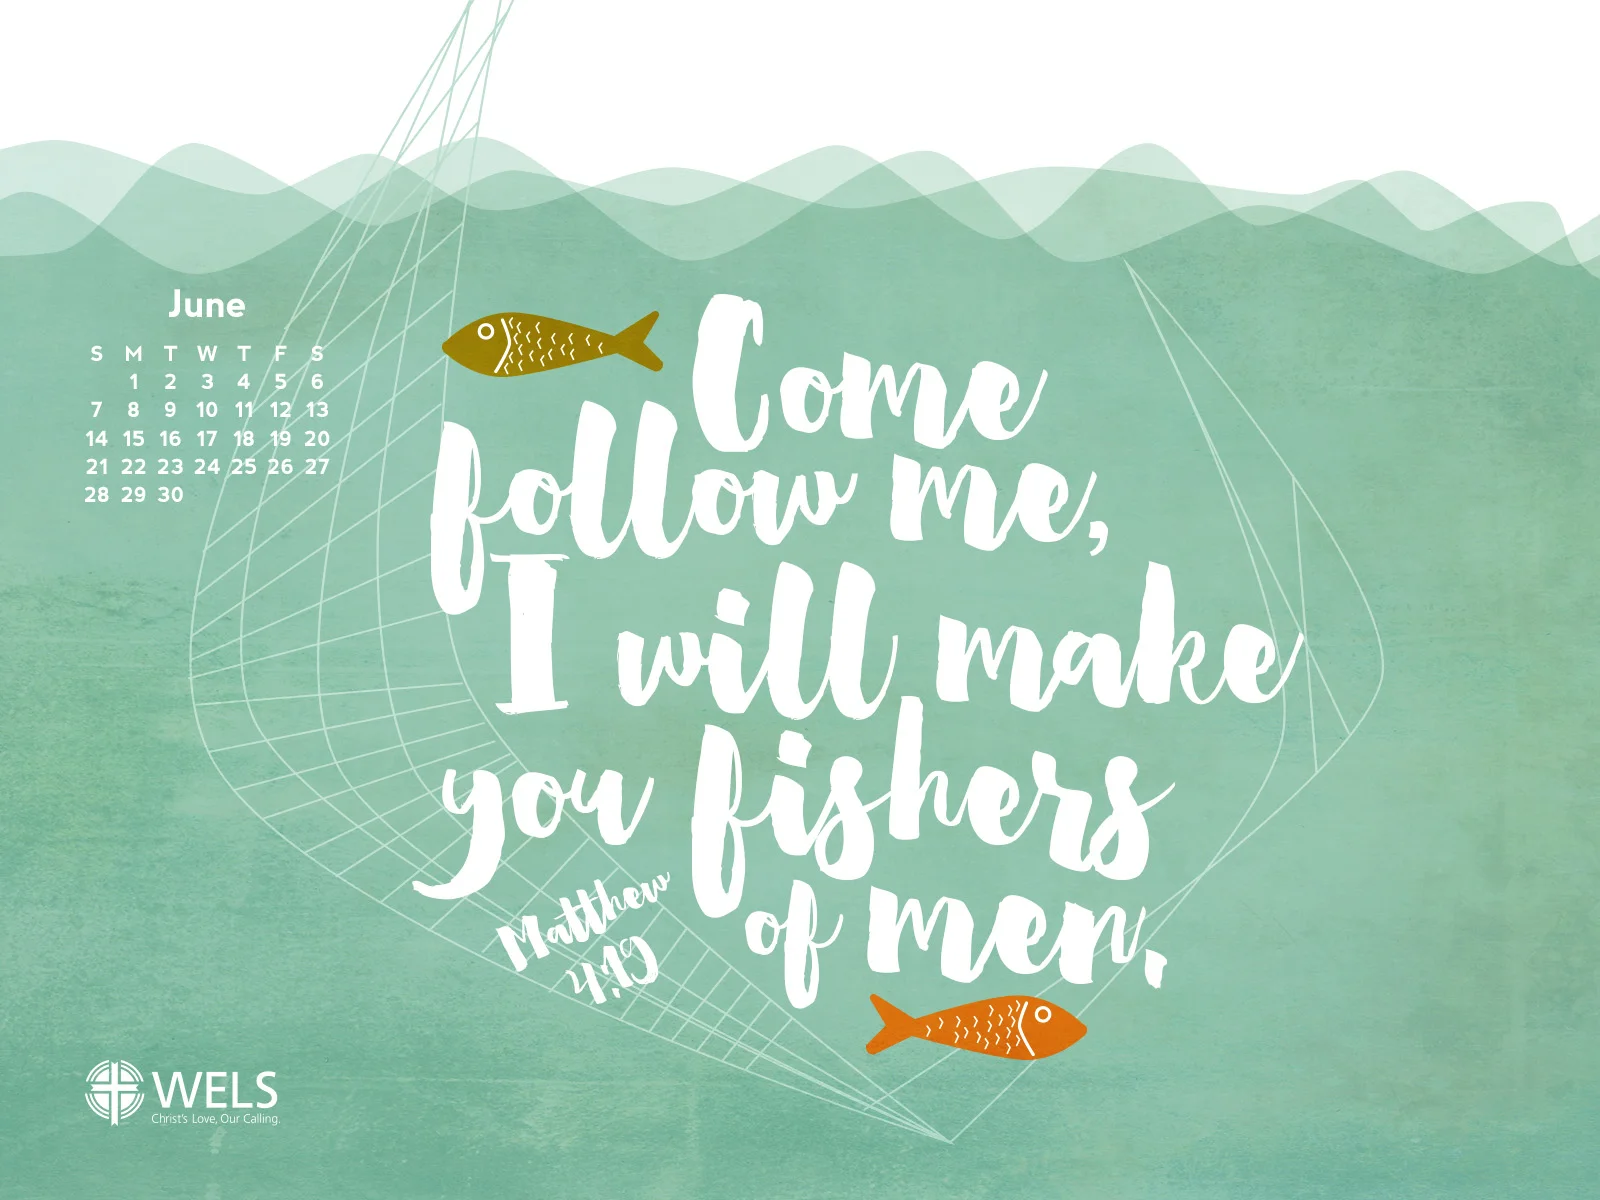 June
S M T W T F S
1 2 3 4 5 6
7 8 9 10 11 12 13
14 15 16 17 18 19 20
21 22 23 24 25 26 27
28 29 30
Come
follow me,
I will make
you fishers
of men.
Matthew
4:19
WELS
Christ's Love, Our Calling.